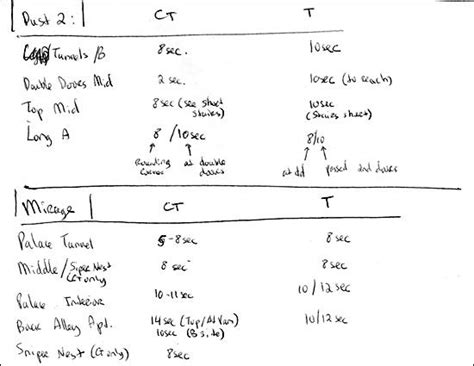 Dust 2: CT T
Tunnels/B 8sec. 10sec
Double Doors Mid 2 sec. 10sec (to reach)
Top Mid 8sec (see short stairs) 10sec (Stairs short)
Long A 8 /10sec 8/10
Rounding corner at double doors at dd passed 2nd doors
Mirage CT T
Palace Tunnel 5-8sec 8sec
Middle/Sniper Nest (CT only) 8sec 8sec
Palace Interior 10-11sec 10/12sec
Back Alley Apt. 14sec (Top/At Van) 10/12sec
10sec (B site)
Sniper Nest (CT only) 8sec